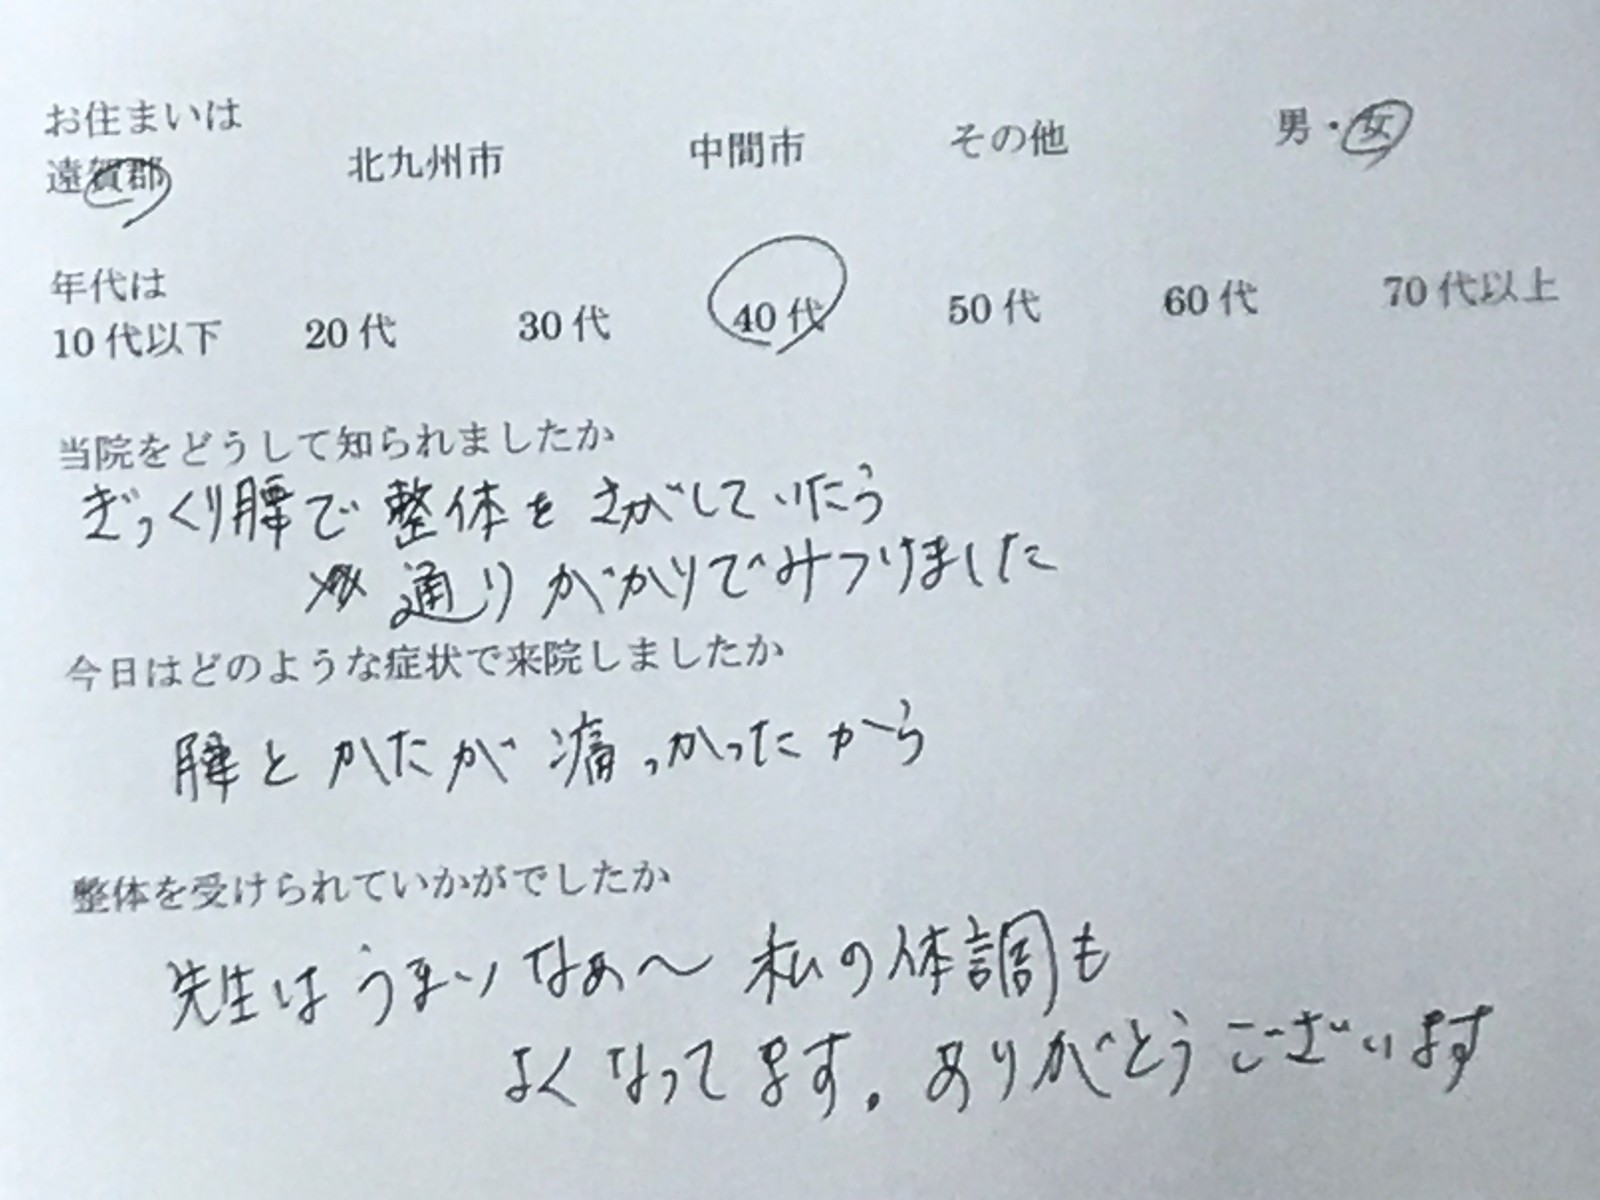 お住まいは
遠賀郡 北九州市 中間市 その他 男・女
年代は
10代以下 20代 30代 40代 50代 60代 70代以上
当院をどうして知られましたか
ぎっくり腰で整体をさがしていたら
通りがかりでみつけました
今日はどのような症状で来院しましたか
腰とかたが痛っかったから
整体を受けられていかがでしたか
先生はうまいなぁ〜 私の体調も
よくなってます。ありがとうございます